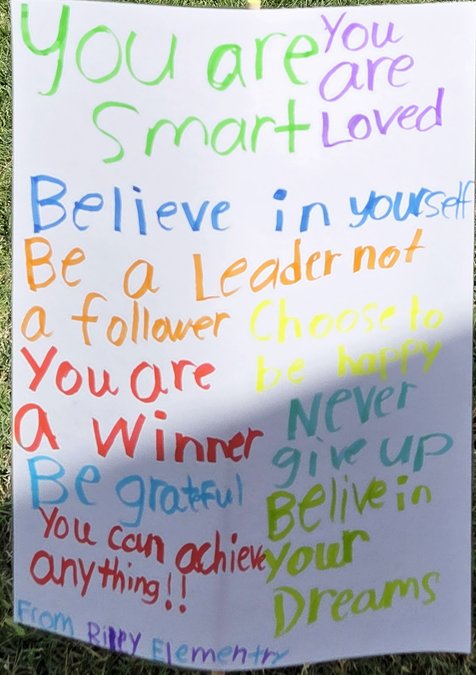 You are
Smart
You
are
Loved
Believe in yourself
Be a Leader not
a follower
Choose to
be happy
You are
a winner
Never
give up
Be grateful
Belive in
your
Dreams
You can achieve
anything!!
From Riley Elementry